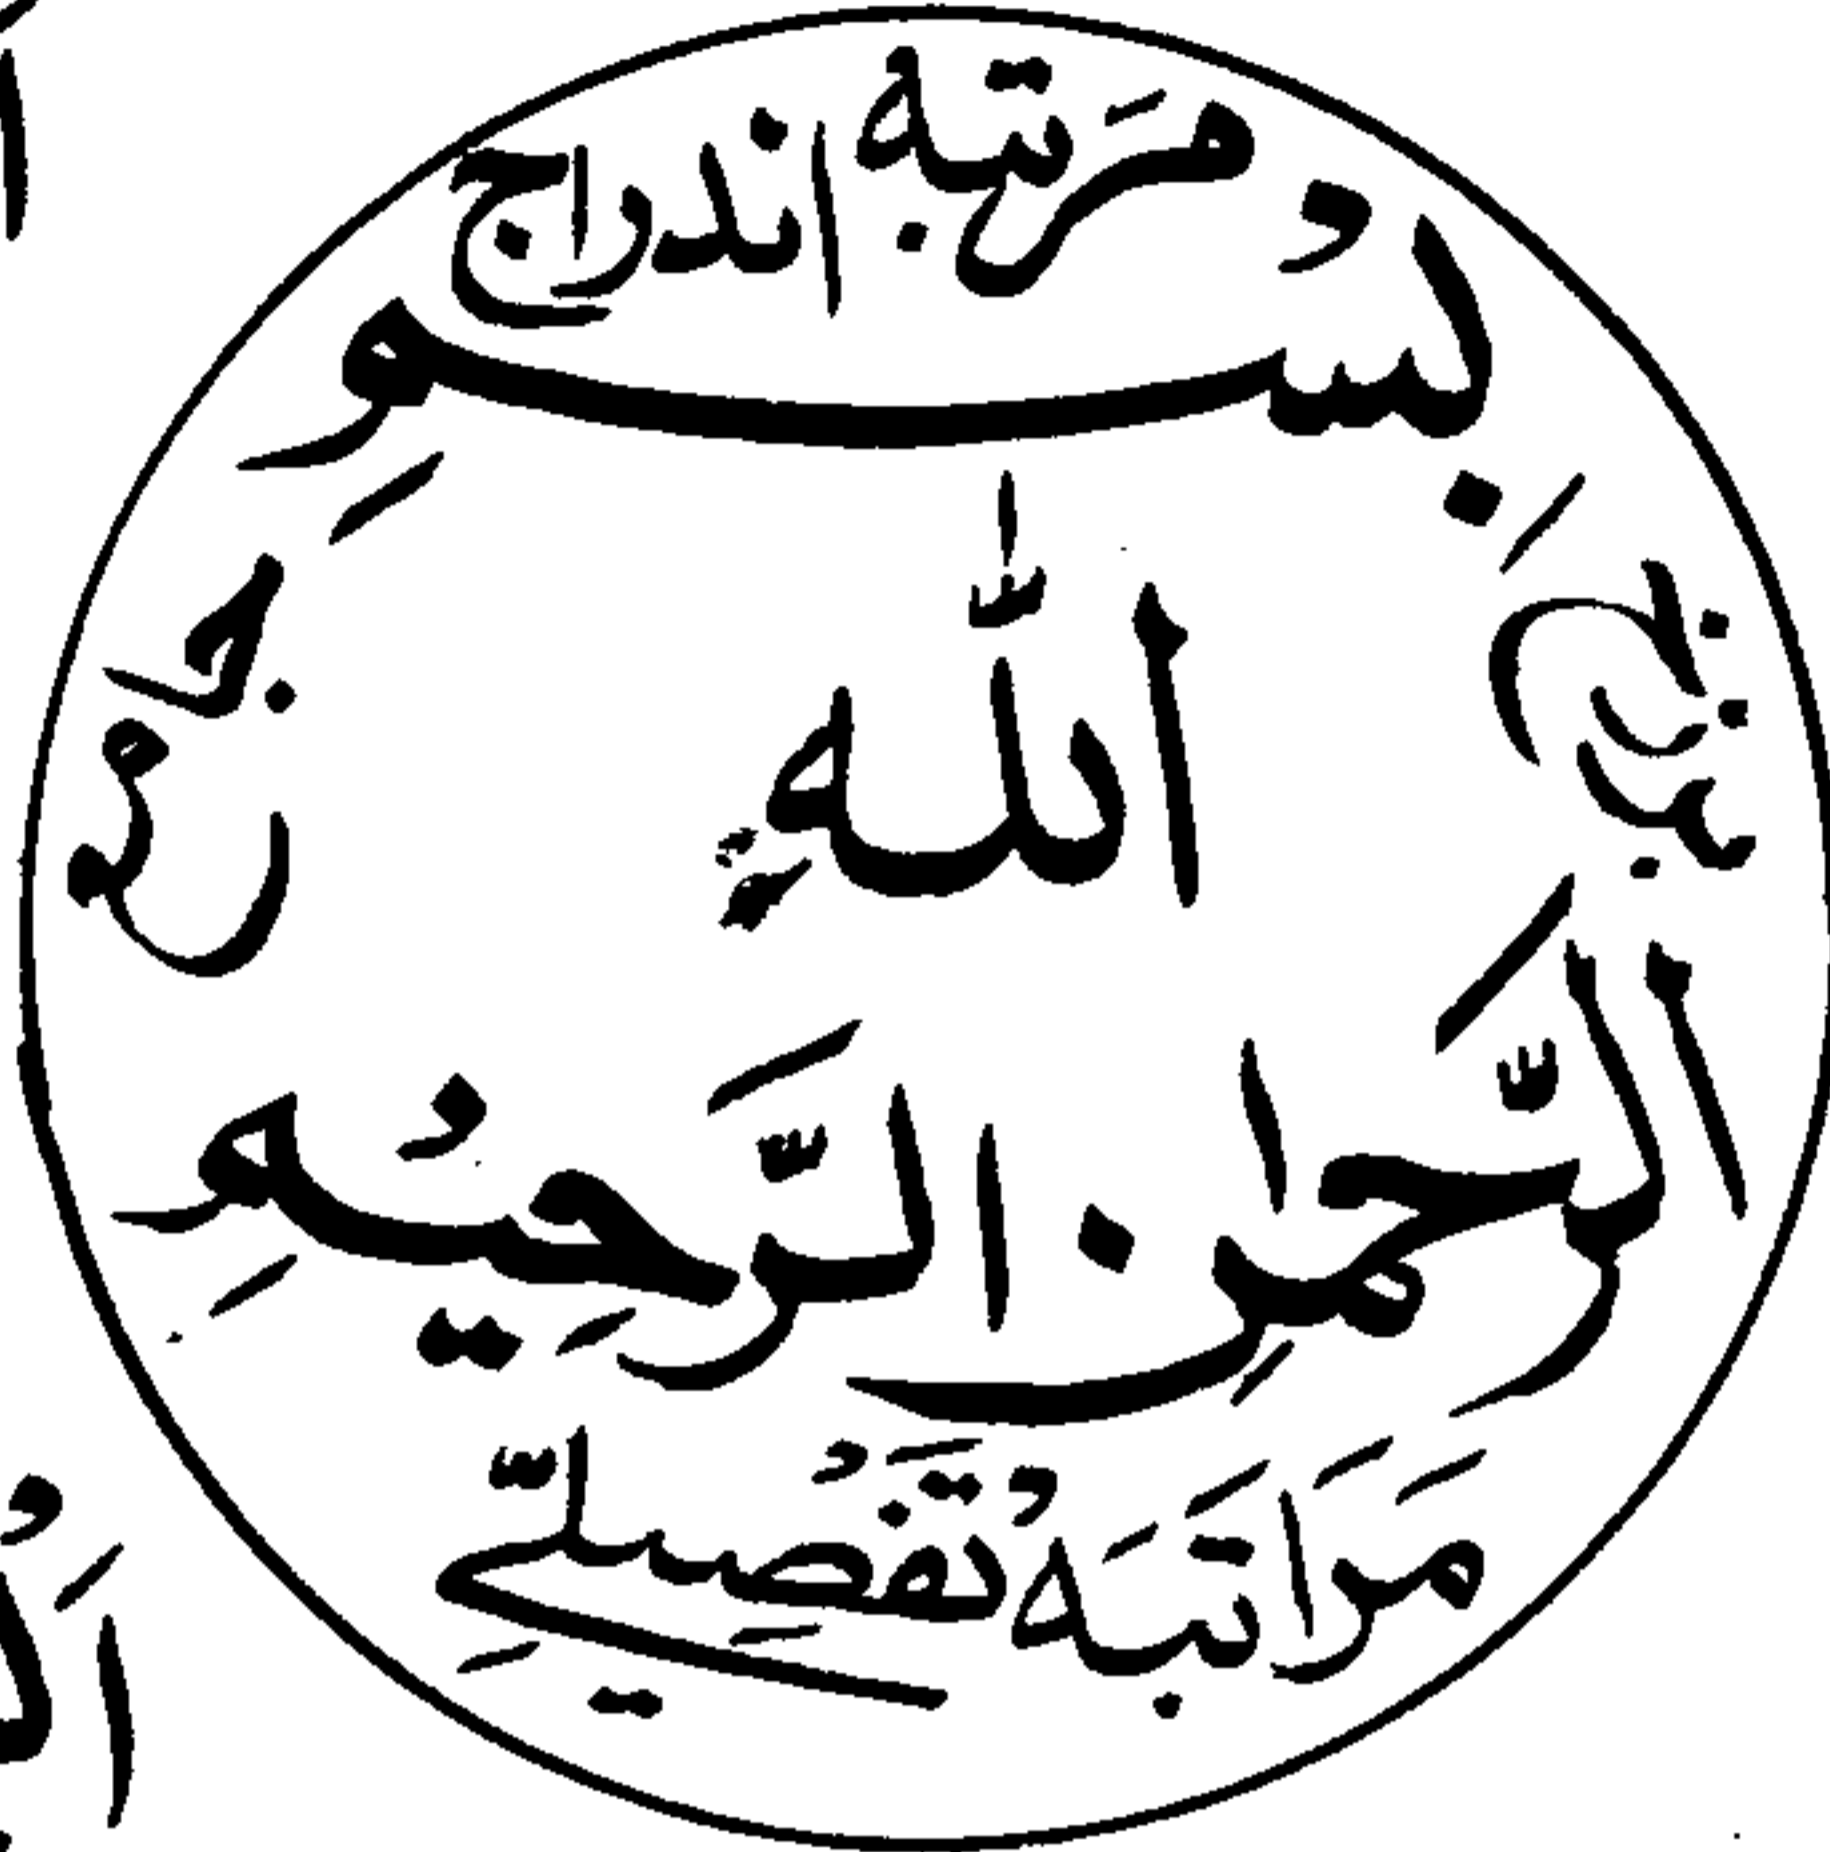 مَرتبه اندراج
بِسْمِ
اللّٰهِ
الرَّحْمٰنِ الرَّحِيْمِ
مَراتبه تفصیلی